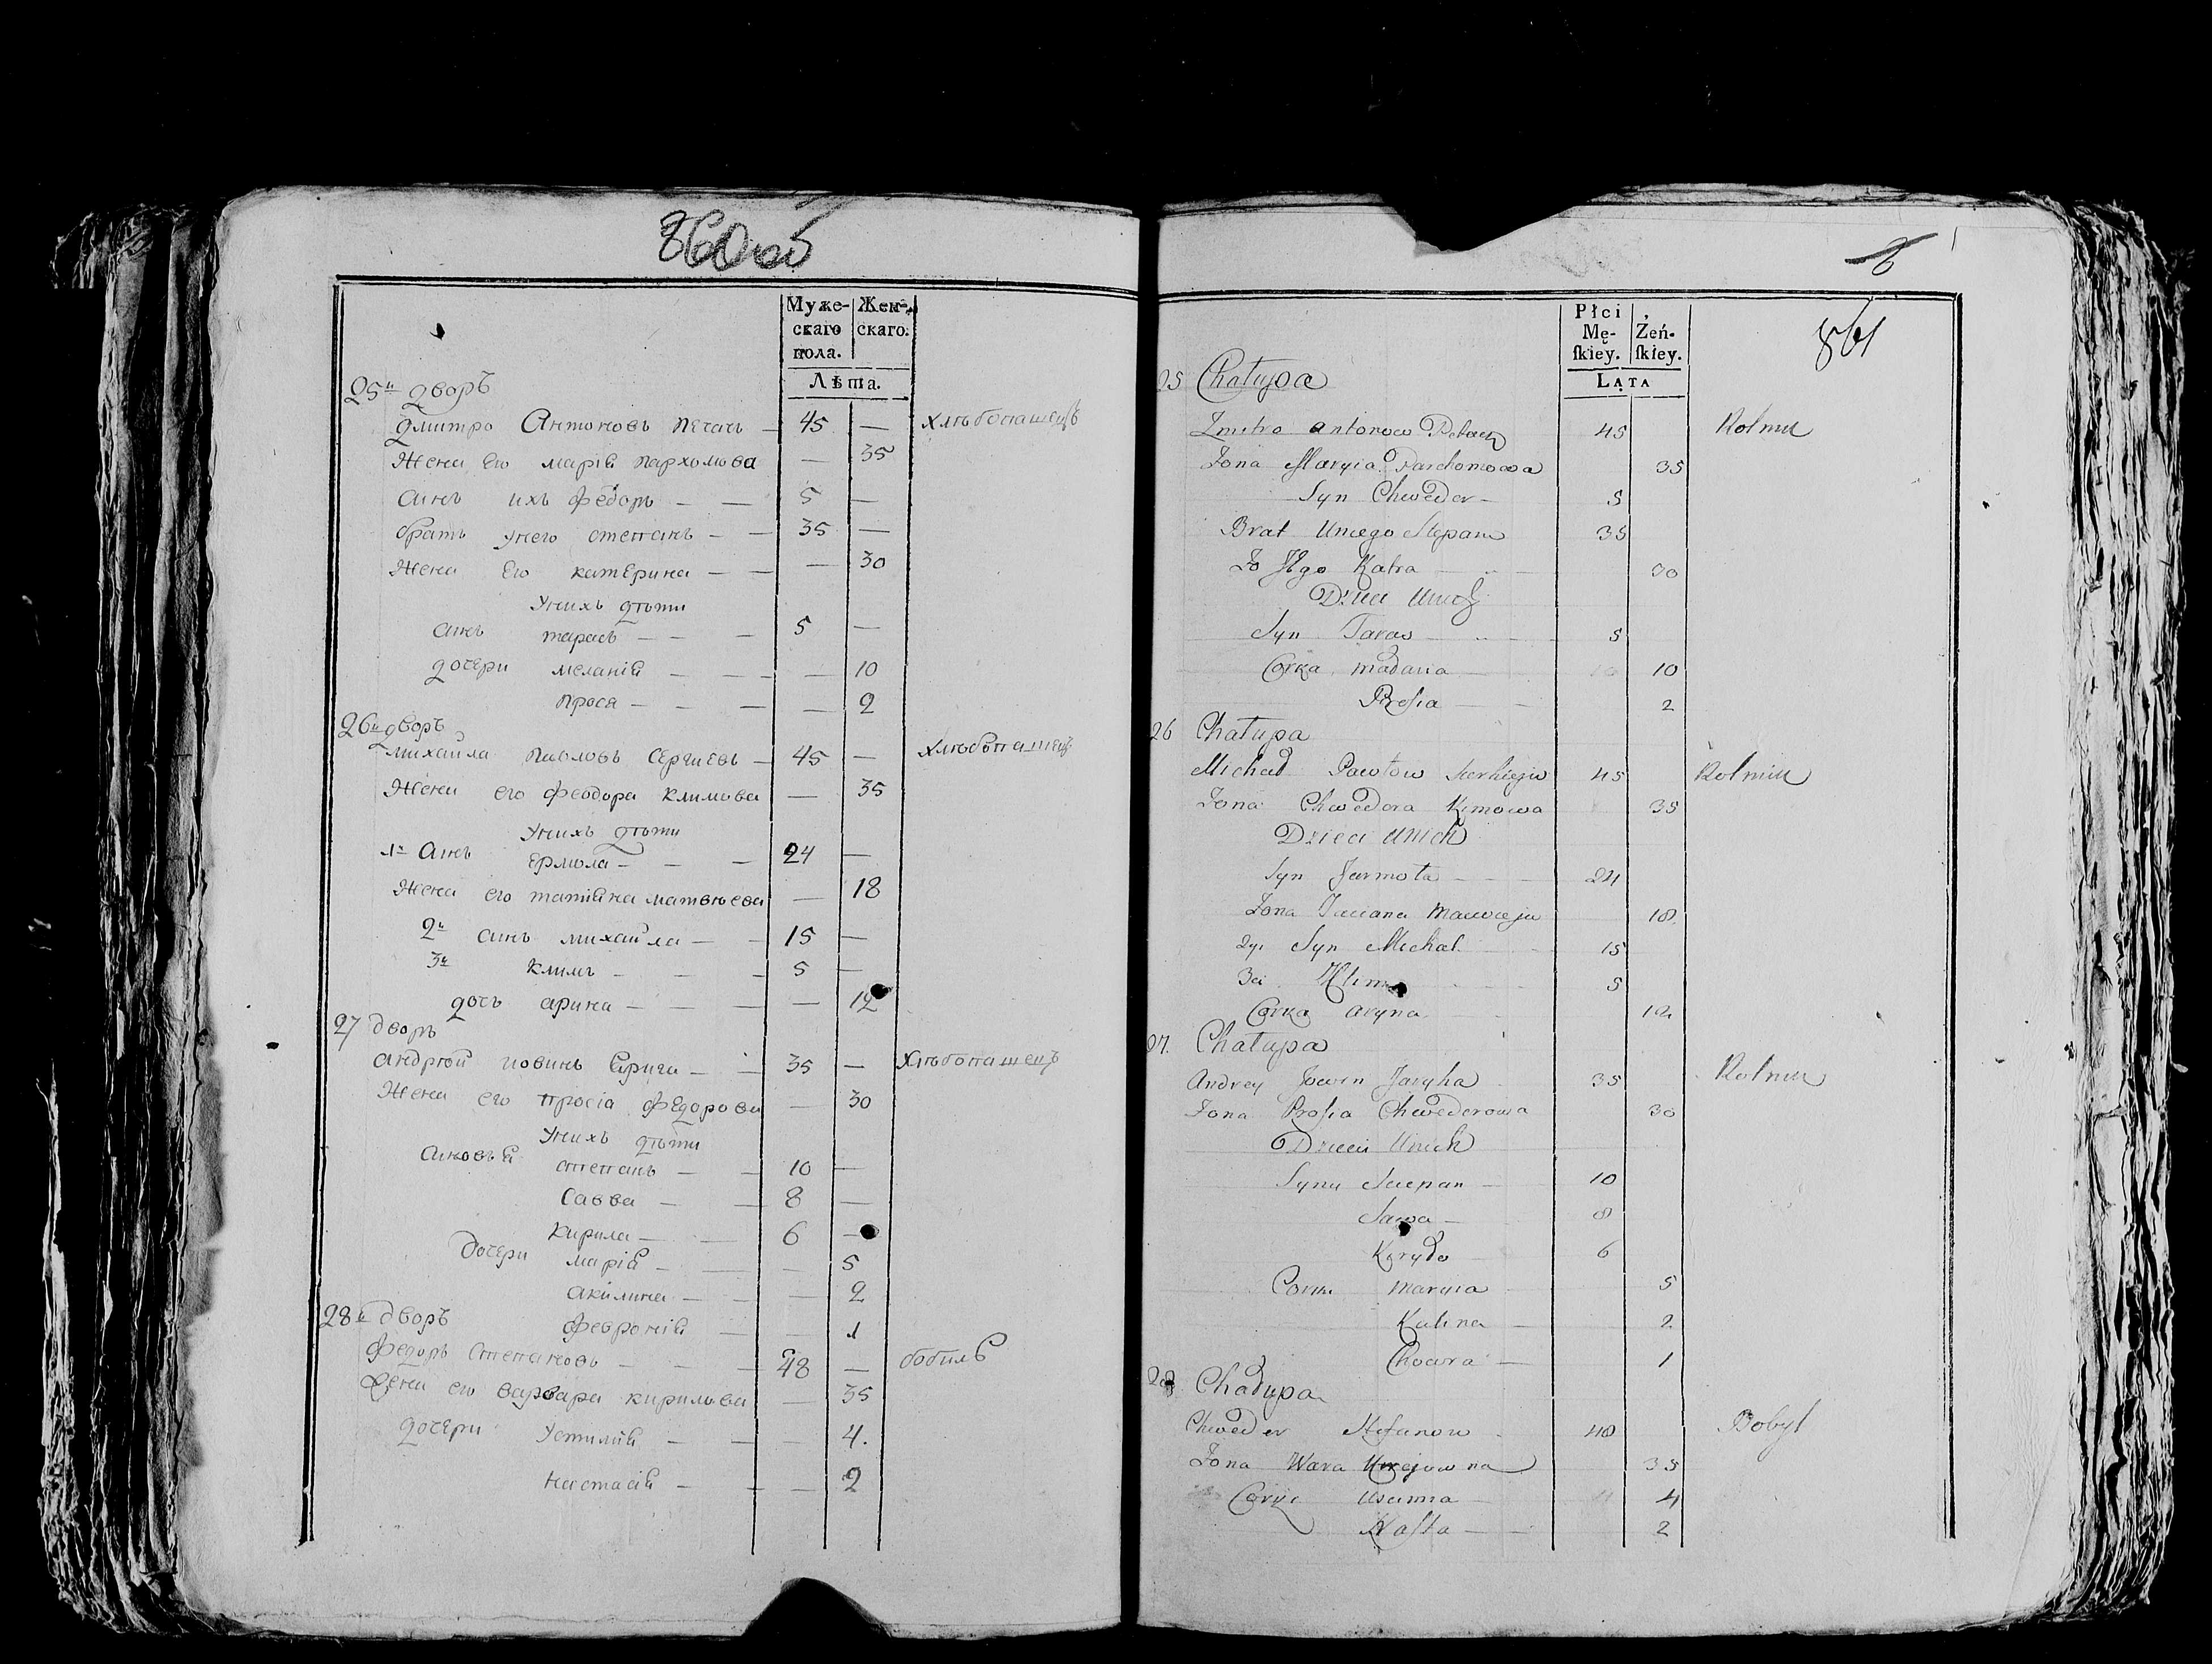 860 об
Муже-
скаго
пола.
Жен-
скаго.
Лѣта.
25й дворъ
Дмитро Антоновъ Печачь — 45 — хлѣбопашецъ
Жена Его марія пархомова — 35
синъ ихъ федоръ — — 5 —
братъ унего степанъ — — 35 —
Жена Его катерина — — — 30
Унихъ дѣти
синъ тарасъ — — — 5 —
дочери меланія — — — — 10
прося — — — — 2
26й дворъ
михайла павловъ Сергиевъ — 45 — хлѣбопашецъ
Жена его феодора климова — 35
Унихъ дѣти
1й Синъ Ермола — — — 24 —
Жена его татіяна матвѣева — 18
2й синъ михайла — — 15 —
3й климъ — — — 5 —
дочь арина — — — — 12
27 дворъ
андрѣй иовинъ Ярига — — 35 — хлѣбопашецъ
Жена его прося федорова — 30
Унихъ дѣти
синовья степанъ — — 10 —
Савва — — 8 —
Кирила — — 6 —
Дочери марія — — — 5
акилина — — — 2
28й дворъ
февронія — — 1
федоръ Степановъ — — — 48 — бобиль
Жена его варвара кирилова — 35
дочери Устимія — — — 4.
настасія — — — 2
6
861
Płci
Mę-
ſkiey.
Żeń-
ſkiey.
Lata
25 Chałupa
Zmitro Antonow Peczacz 45 Rolnik
Żona Maryia Parchomowa 35
Syn Chwedor — 5
Brat Uniego Stepan 35
Żo Jego Katra — 30
Dzieci Unich
Syn Taras — 5
Corka małania — 10
Prosia — 2
26 Chałupa
Michał Pawłow Serhiejew 45 Rolnik
Żona Chwedora Kimowa 35
Dzieci Unich
Syn Jarmoła — 24
Żona Taciana Maciejew 18
2gi Syn Michał 15
3ci Klim 5
Corka Aryna 12
27. Chałupa
Andrey Jowin Jaryha 35 Rolnik
Żona Prosia Chwederowa 30
Dzieci Unich
Syny Sciepan — 10
Sawa — 8
Kiryło — 6
Corki Maryia 5
Kulina — 2
Chowra — 1
28 Chałupa
Chweder Stefanow 48 Bobyl
Żona Wara 35
Corki 4
Nasta — 2